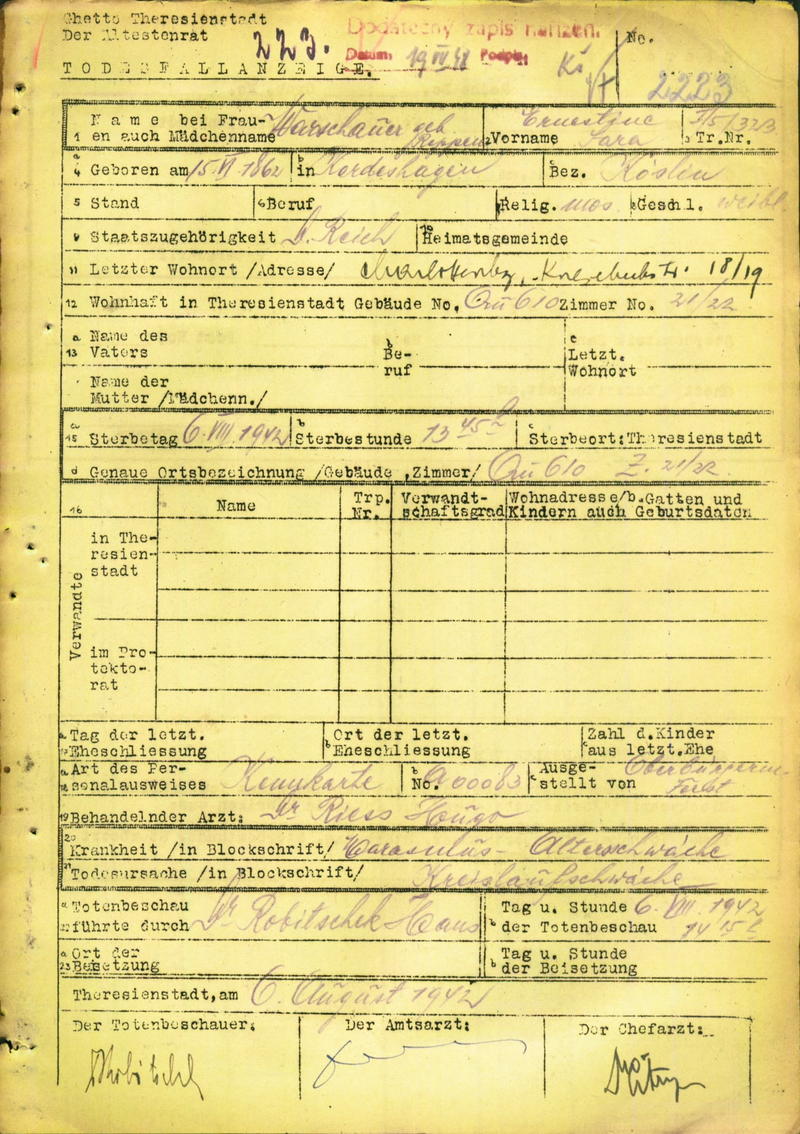 Ghetto Theresienstadt
Der Ältestenrat
223.
TODESFALLANZEIGE.
Dodatečný zápis
Datum: 19 IV 48 Podpis: Kš
No.
2223
Name bei Frau- Warschauer geb
1 en auch Mädchenname
2 Vorname Ernestine Sara
3 Tr.Nr.
a 4 Geboren am 15. VI 1862 b in Kordeshagen c Bez. Köslin
5 Stand 6 Beruf 7 Relig. mos 8 Geschl. weibl.
9 Staatszugehörigkeit D. Reich 10 Heimatsgemeinde
11 Letzter Wohnort /Adresse/ Charlottenbg, 18/19
12 Wohnhaft in Theresienstadt Gebäude No. Qu 610 Zimmer No. 21/22
a Name des
13 Vaters
b Be-
ruf
c Letzt.
Wohnort
Name der
Mutter /Mädchenn./
a 15 Sterbetag 6. VIII. 1942 b Sterbestunde 13 45 h c Sterbeort: Theresienstadt
d Genaue Ortsbezeichnung /Gebäude, Zimmer/ Qu 610 Z. 21/22
16 Name
Trp.
Nr.
Verwandt-
schaftsgrad
Wohnadresse/b. Gatten und
Kindern auch Geburtsdaten
Verwandte
in The-
resien-
stadt
im Pro-
tekto-
rat
a Tag der letzt.
17 Eheschliessung
b Ort der letzt.
Eheschliessung
c Zahl d. Kinder
aus letzt. Ehe
a Art des Per-
18 sonalausweises Kennkarte
b No. A 00083
c Ausge-
stellt von
19 Behandelnder Arzt: Dr Riess Hugo
20 Krankheit /in Blockschrift/ Marasmus - Altersschwäche
21 Todesursache /in Blockschrift/ Kreislaufschwäche
a Totenbeschau
22 führte durch Dr Robitschek Hans
b Tag u. Stunde 6. VIII. 1942
der Totenbeschau 14 15 h
a Ort der
23 Beisetzung
b Tag u. Stunde
der Beisetzung
Theresienstadt, am 6. August 1942
Der Totenbeschauer: Der Amtsarzt: Der Chefarzt:
Robitschek